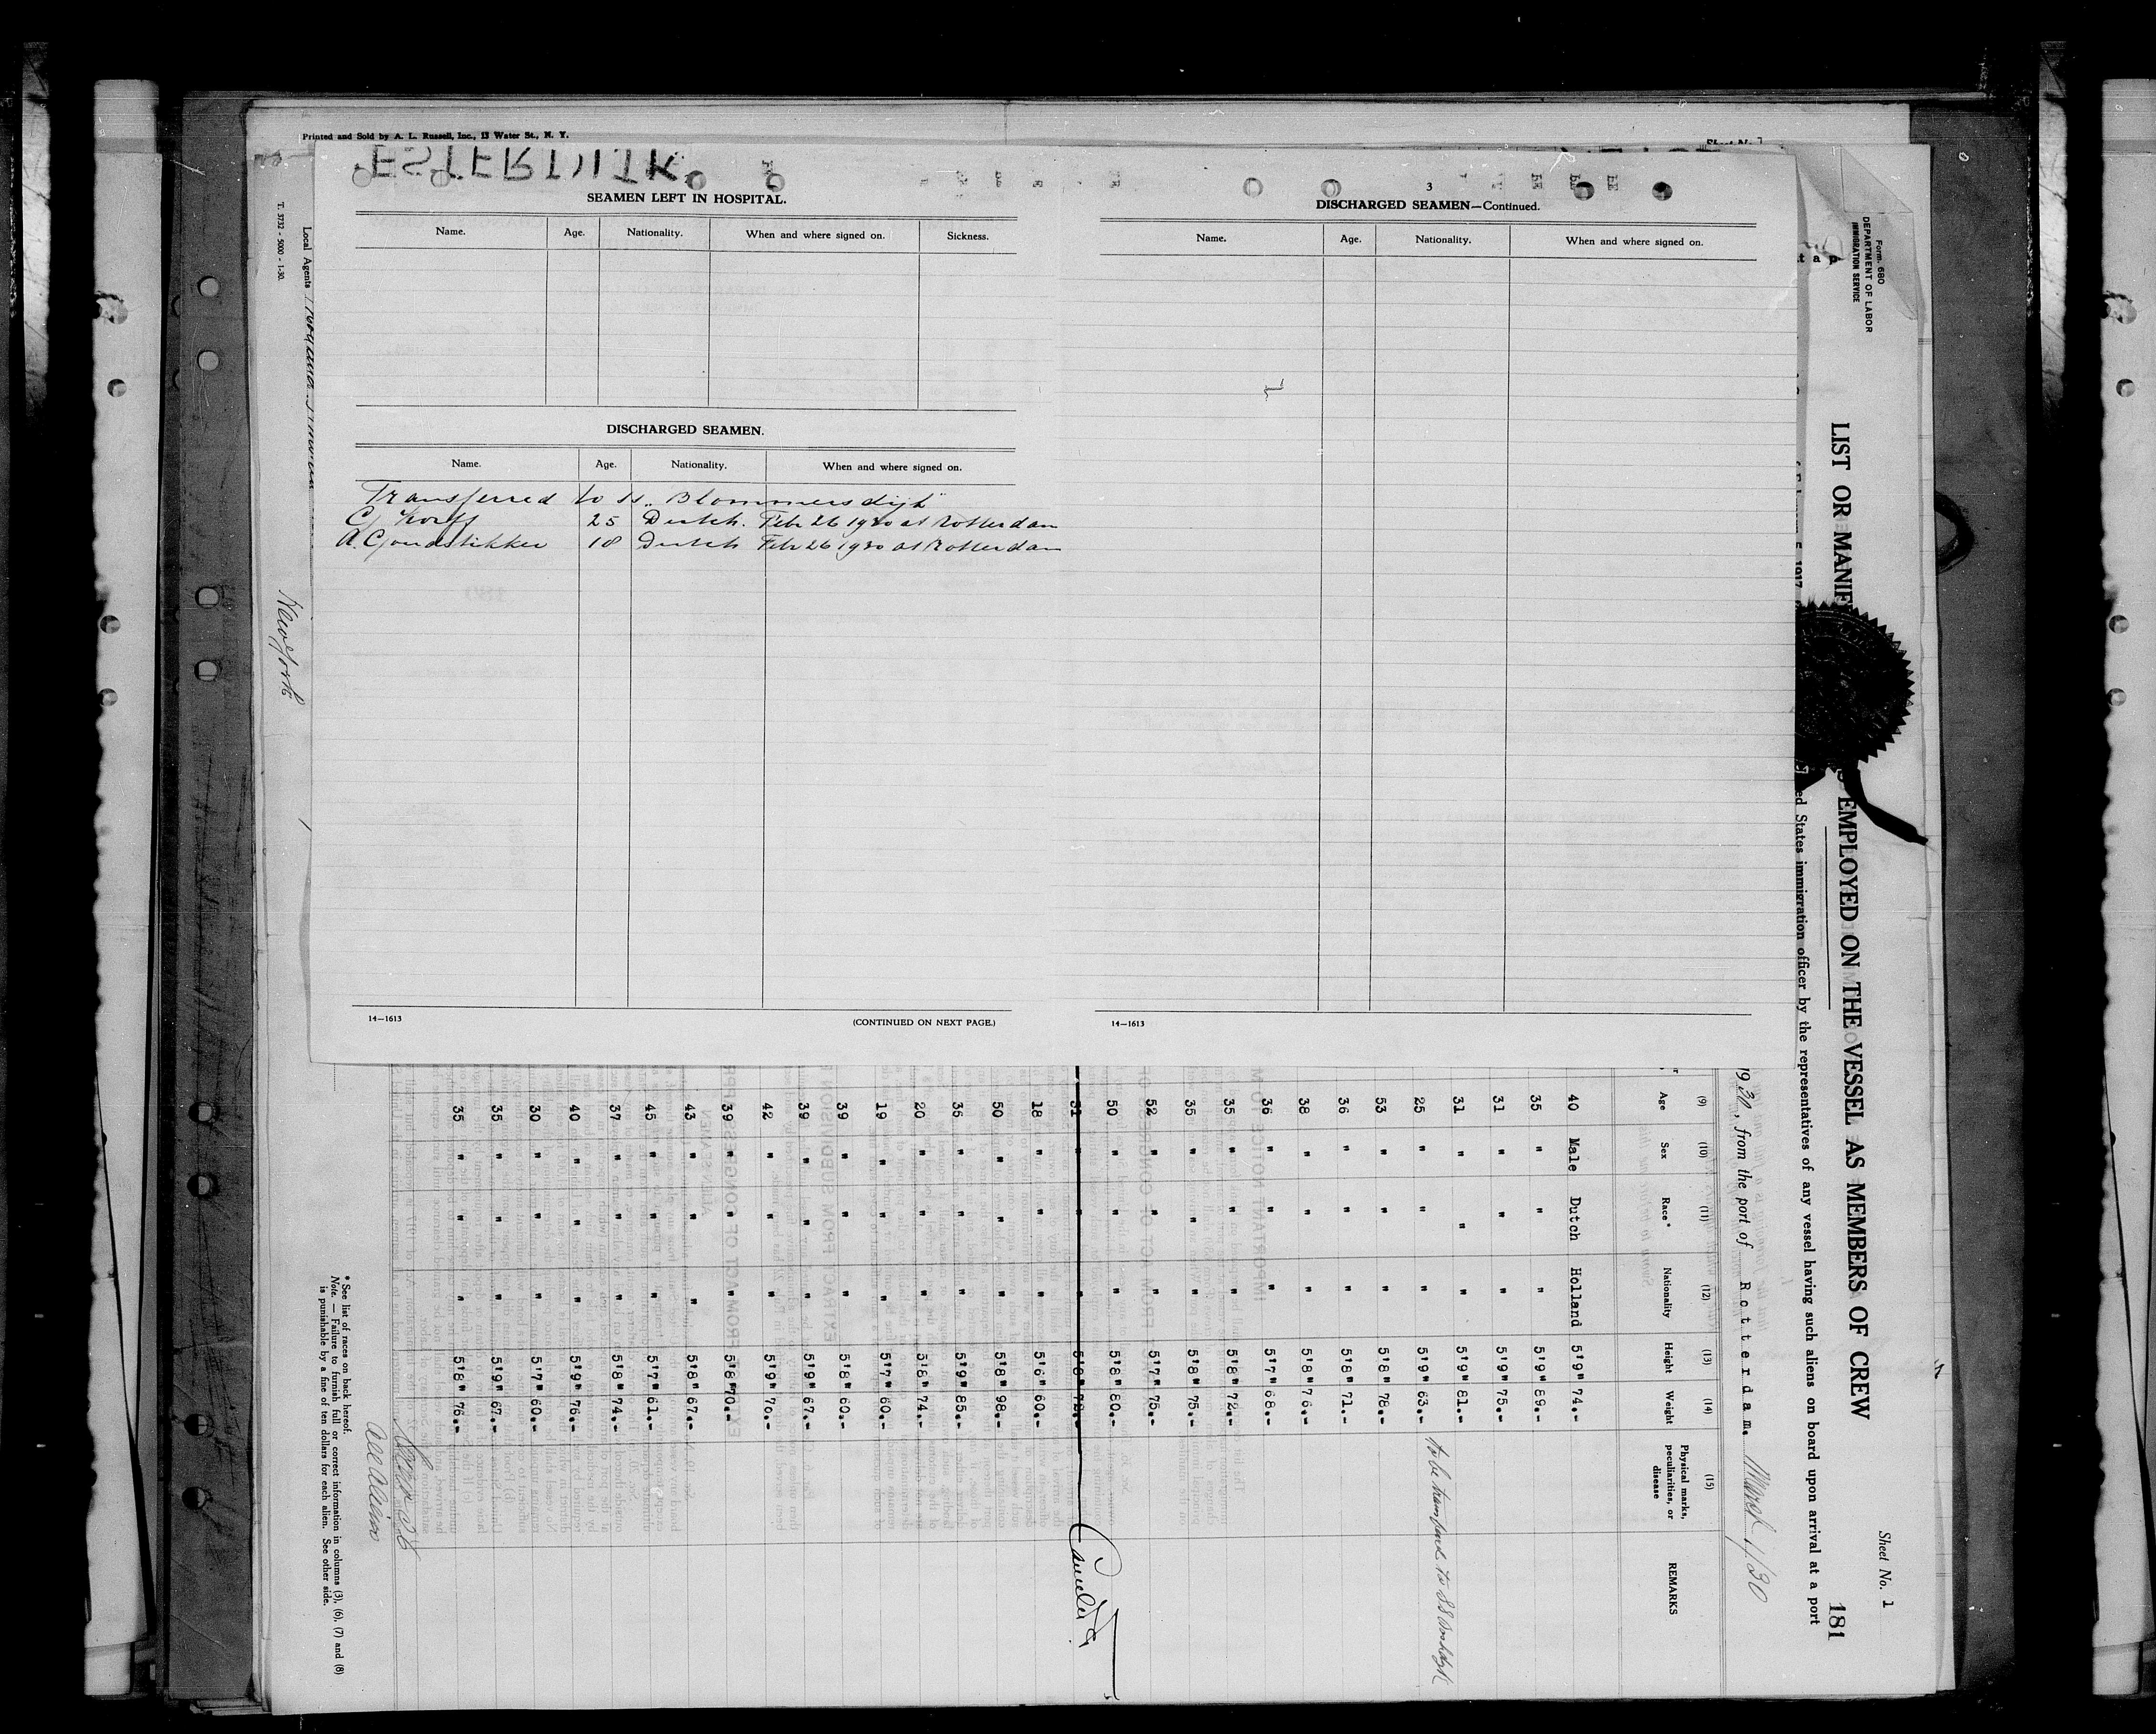 Printed and Sold by A. L. Russell, Inc., 13 Water St., N. Y.
T. 3732 - 5000 - 1-30.
Local Agents
New York
SEAMEN LEFT IN HOSPITAL.
Name. Age. Nationality. When and where signed on. Sickness.
DISCHARGED SEAMEN.
Name. Age. Nationality. When and where signed on.
Transferred to ss. "Blommersdijk"
C. Korff 25 Dutch. Febr 26 1930 at Rotterdam
A. C. Goudstikker 18 Dutch Febr 26 1930 at Rotterdam
14—1613
(CONTINUED ON NEXT PAGE.)
3
DISCHARGED SEAMEN—Continued.
Name. Age. Nationality. When and where signed on.
14—1613
Form 680
DEPARTMENT OF LABOR
IMMIGRATION SERVICE
Sheet No. 1
181
LIST OR MANIFE
EMPLOYED ON THE VESSEL AS MEMBERS OF CREW
ed States immigration officer by the representatives of any vessel having such aliens on board upon arrival at a port
1930, from the port of Rotterdam. March 1/30
(9) (10) (11) (12) (13) (14) (15)
Age Sex Race* Nationality Height Weight Physical marks, peculiarities, or disease REMARKS
40 Male Dutch Holland 5'9" 74.-
35 " " " 5'9" 89.-
31 " " " 5'9" 75.-
31 " " " 5'9" 81.-
25 " " " 5'9" 63.- to be transferred to SS
53 " " " 5'8" 78.-
36 " " " 5'8" 71.-
38 " " " 5'8" 76.-
36 " " " 5'7" 68.-
35 " " " 5'8" 72.-
35 " " " 5'8" 75.-
52 " " " 5'7" 75.-
50 " " " 5'8" 80.-
31 " " " 5'8" 72.-
18 " " " 5'6" 60.-
50 " " " 5'8" 98.-
36 " " " 5'9" 85.-
20 " " " 5'8" 74.-
19 " " " 5'7" 60.-
39 " " " 5'8" 60.-
39 " " " 5'9" 67.-
42 " " " 5'9" 70.-
39 " " " 5'8" 70.-
43 " " " 5'8" 67.-
45 " " " 5'7" 61.-
37 " " " 5'8" 74.-
40 " " " 5'9" 76.-
30 " " " 5'7" 60.-
35 " " " 5'9" 67.-
35 " " " 5'8" 76.-
all aliens
* See list of races on back hereof.
Note. — Failure to furnish full or correct information in columns (3), (6), (7) and (8)
is punishable by a fine of ten dollars for each alien. See other side.